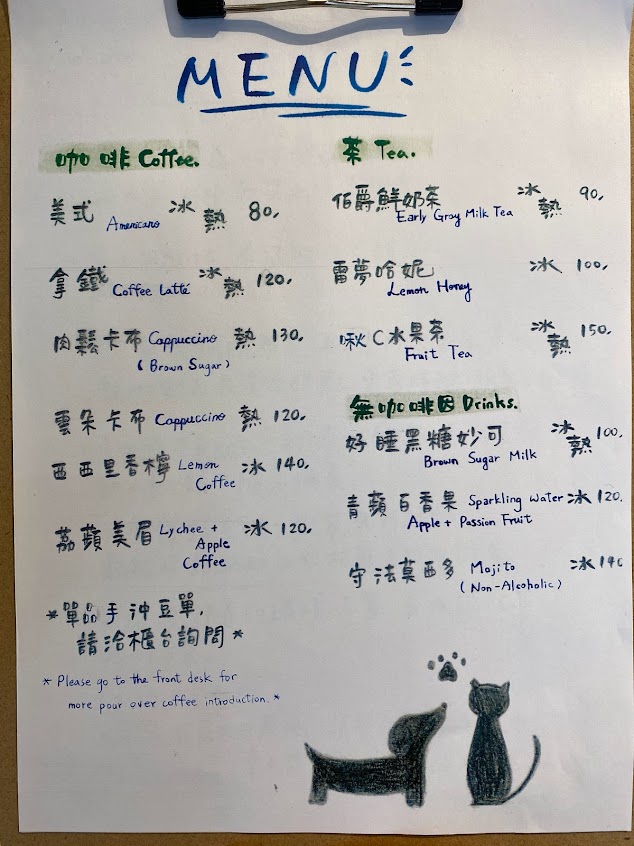 MENU
咖啡 Coffee.
美式 Americano 冰 熱 80.
拿鐵 Coffee Latté 冰 熱 120.
肉鬆卡布 Cappuccino 熱 130.
(Brown Sugar)
雲朵卡布 Cappuccino 熱 120.
西西里香檸 Lemon Coffee 冰 140.
荔蘋美眉 Lychee + Apple Coffee 冰 120.
*單品手沖豆單,
請洽櫃台詢問*
* Please go to the front desk for
more pour over coffee introduction. *
茶 Tea.
伯爵鮮奶茶 冰 熱 90.
Early Gray Milk Tea
雷夢哈妮 冰 100.
Lemon Honey
啾C水果茶 冰 熱 150.
Fruit Tea
無咖啡因 Drinks.
好睡黑糖妙可 冰 熱 100.
Brown Sugar Milk
青蘋百香果 Sparkling Water 冰 120.
Apple + Passion Fruit
守法莫西多 Mojito 冰 140
(Non-Alcoholic)